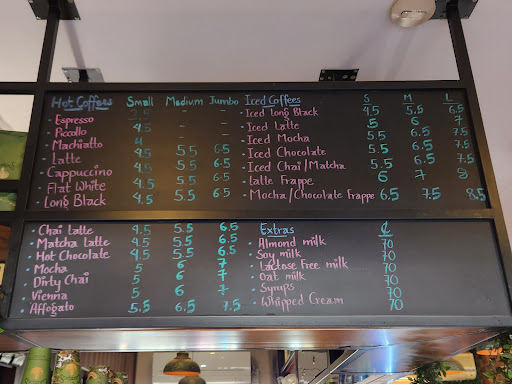 Hot Coffees Small Medium Jumbo
• Espresso 3.5 - -
• Piccollo 4.5 - -
• Machiatto 4 - -
• Latte 4.5 5.5 6.5
• Cappuccino 4.5 5.5 6.5
• Flat White 4.5 5.5 6.5
• Long Black 4.5 5.5 6.5
Iced Coffees S M L
• Iced Long Black 4.5 5.5 6.5
• Iced Latte 5 6 7
• Iced Mocha 5.5 6.5 7.5
• Iced Chocolate 5.5 6.5 7.5
• Iced Chai/Matcha 5.5 6.5 7.5
• Latte Frappe 6 7 8
• Mocha/Chocolate Frappe 6.5 7.5 8.5
• Chai Latte 4.5 5.5 6.5
• Matcha Latte 4.5 5.5 6.5
• Hot Chocolate 4.5 5.5 6.5
• Mocha 5 6 7
• Dirty Chai 5 6 7
• Vienna 5 6 7
• Affogato 5.5 6.5 7.5
Extras ₵
• Almond milk 70
• Soy milk 70
• Lactose Free milk 70
• Oat milk 70
• Syrups 70
• Whipped Cream 70